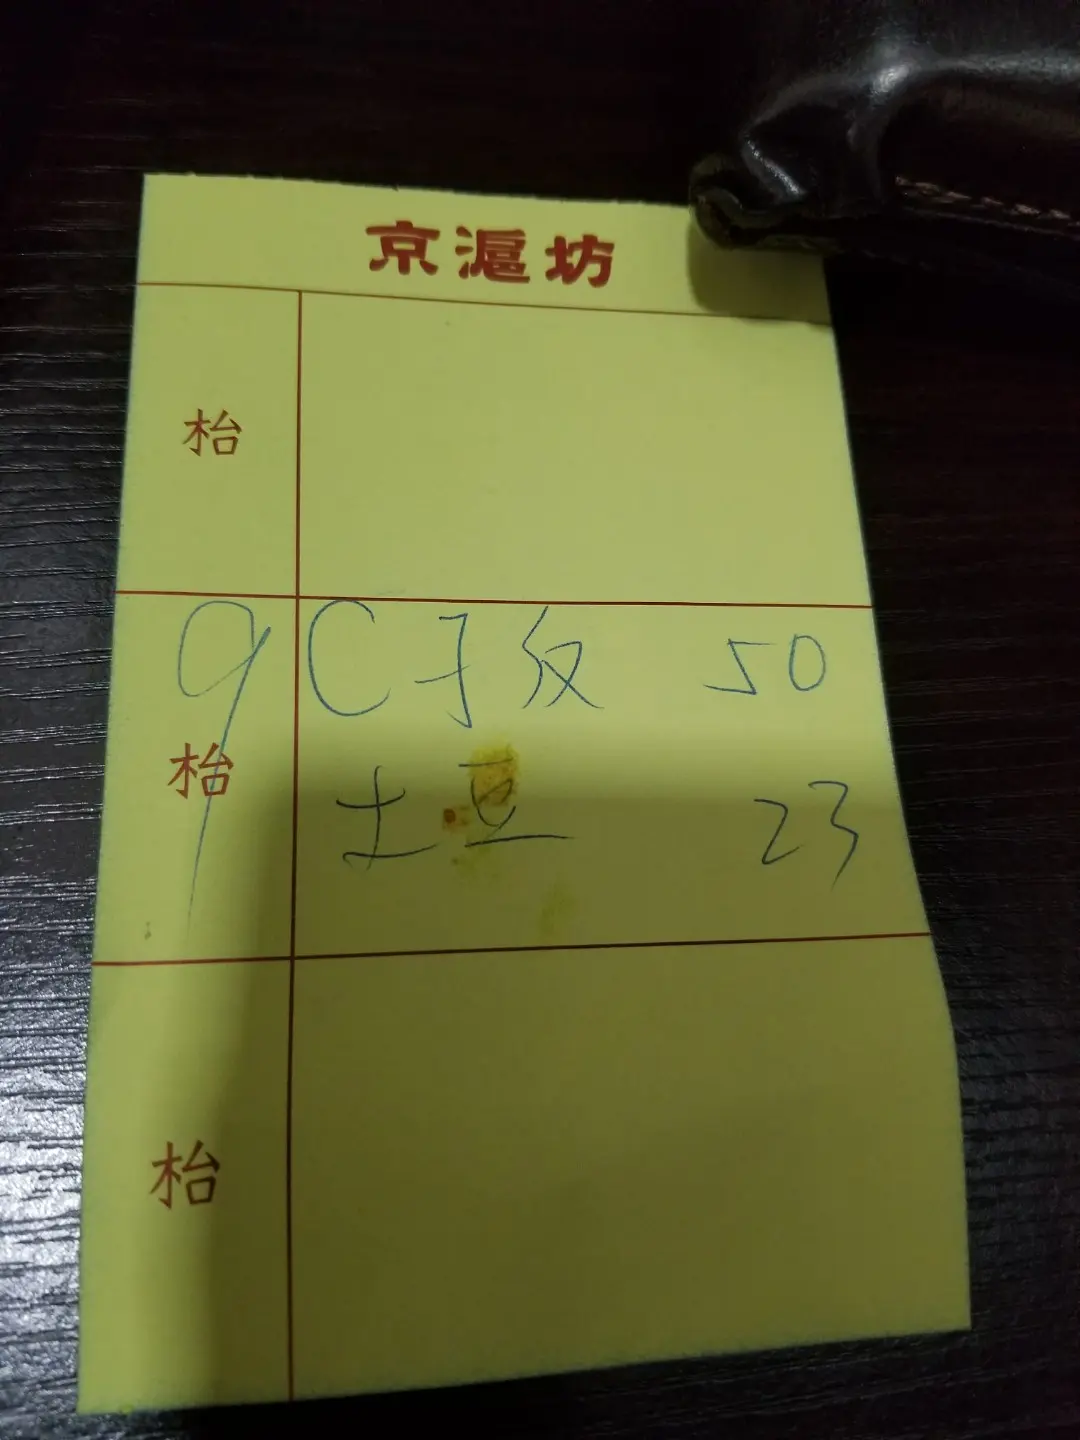 京滬坊
枱
9枱
C 50
土豆 23
枱